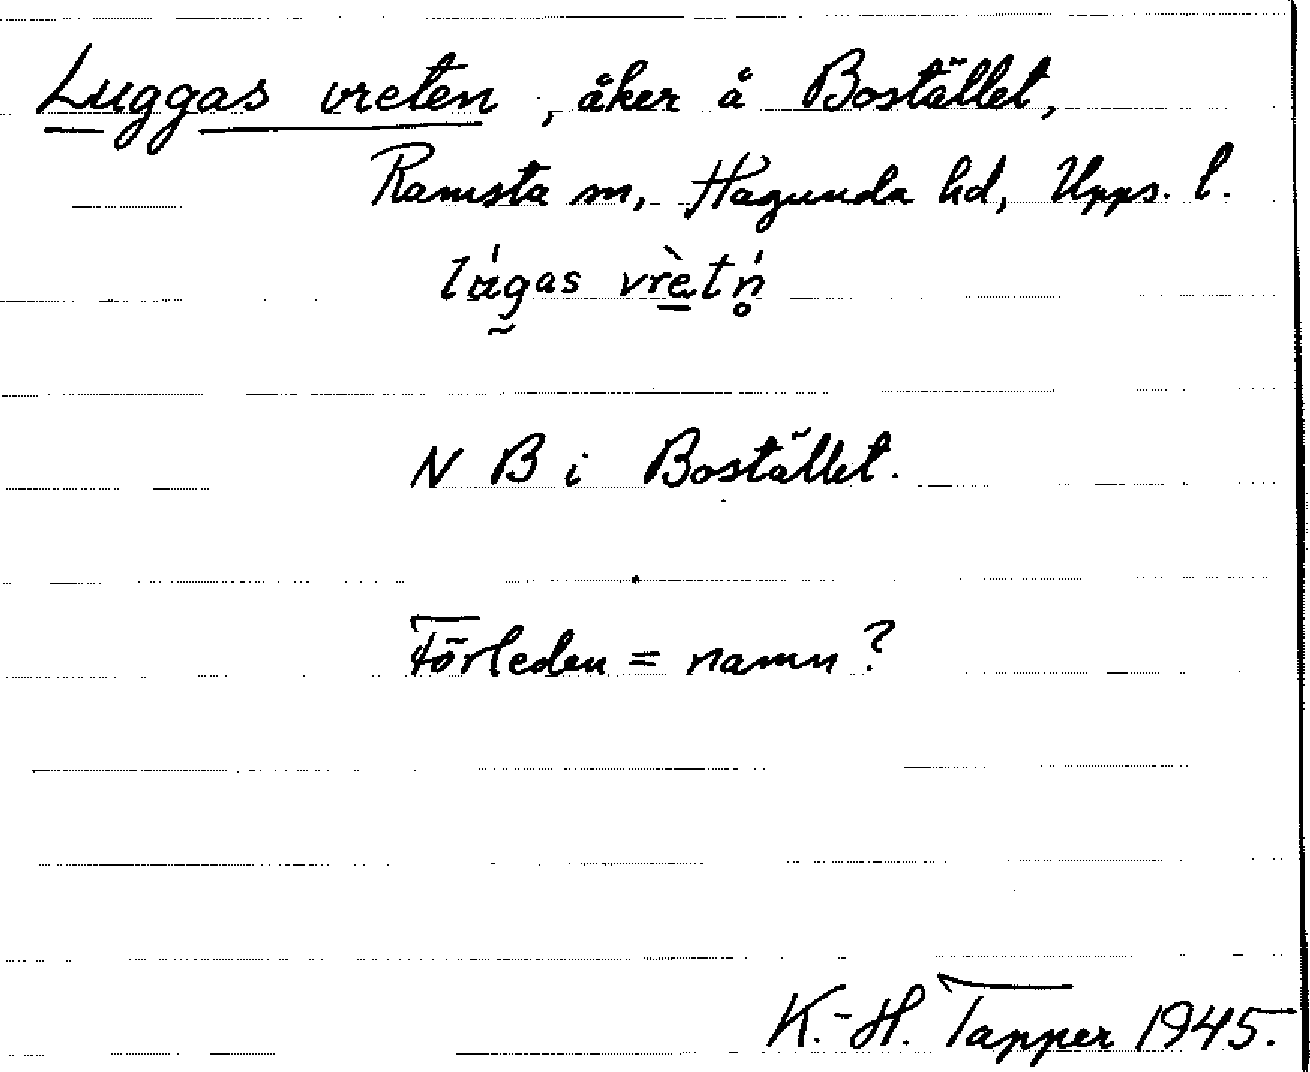 Luggas vreten, åker å Bostället,
Ramsta sn, Hagunda hd, Upps. l.
lágas vrètń̥
N B i Bostället.
Förleden = namn?
K.-H. Tapper 1945.